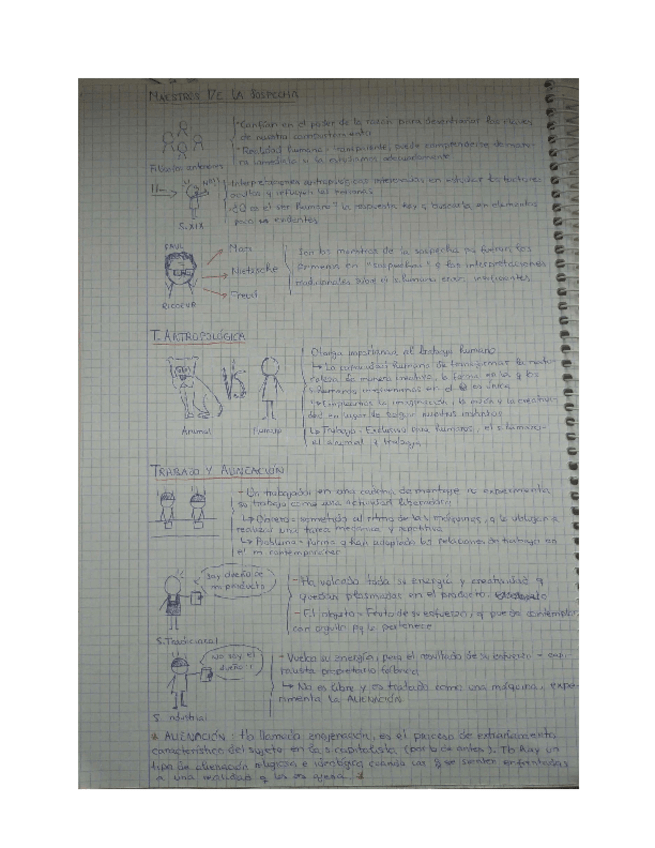 MAESTROS DE LA SOSPECHA
- Confían en el poder de la razón para desentrañar las claves
de nuestro comportamiento
- Realidad humana = transparente, puede comprenderse de mane-
ra inmediata si la estudiamos adecuadamente
Filósofos anteriores
- Interpretaciones antropológicas interesadas en estudiar las
ocultas y
¿Q es el ser humano? la respuesta hay q buscarla en elementos
poco evidentes
S.XIX
PAUL
RICOEUR
Marx
Nietzsche
Freud
Son los maestros de la sospecha pq fueron los
primeros en "sospechar" q las interpretaciones
tradicionales sobre el s. humano eran insuficientes
T. ANTROPOLÓGICA
Animal
VS
Humano
Otorga importancia al trabajo humano
↳ La capacidad humana de transformar la natu-
raleza de manera creativa, la forma en la q los
s. humanos en el es única
la imaginación, la razón y la creativi-
dad en lugar de seguir nuestros instintos
↳ Trabajo = Exclusivo humanos, el s. humano
el animal, trabaja
TRABAJO Y ALIENACIÓN
- Un trabajador en una cadena de montaje no experimenta
su trabajo como una actividad liberadora
↳ Obrero = sometido al ritmo de las máquinas, q le obligan a
realizar una tarea mecánica y repetitiva
↳ Problema = forma q han adoptado las relaciones de trabajo en
el m. contemporáneo
Soy dueño de
mi producto
- Ha volcado toda su energía y creatividad q
quedan plasmadas en el producto.
- El objeto = Fruto de su esfuerzo, q puede contemplar
con orgullo pq le pertenece
S. Tradicional
No soy el
dueño :(
- Vuelca su energía, pero el resultado de su esfuerzo = cap.
propietario fábrica
↳ No es libre y es tratado como una máquina, expe-
rimenta la ALIENACIÓN
S. Industrial
* ALIENACIÓN: Tb llamada enajenación, es el proceso de extrañamiento
característico del sujeto en la s. capitalista (por lo de antes). Tb hay un
tipo de alienación religiosa e ideológica cuando las se sienten enfrentadas
a una realidad q les es ajena. *